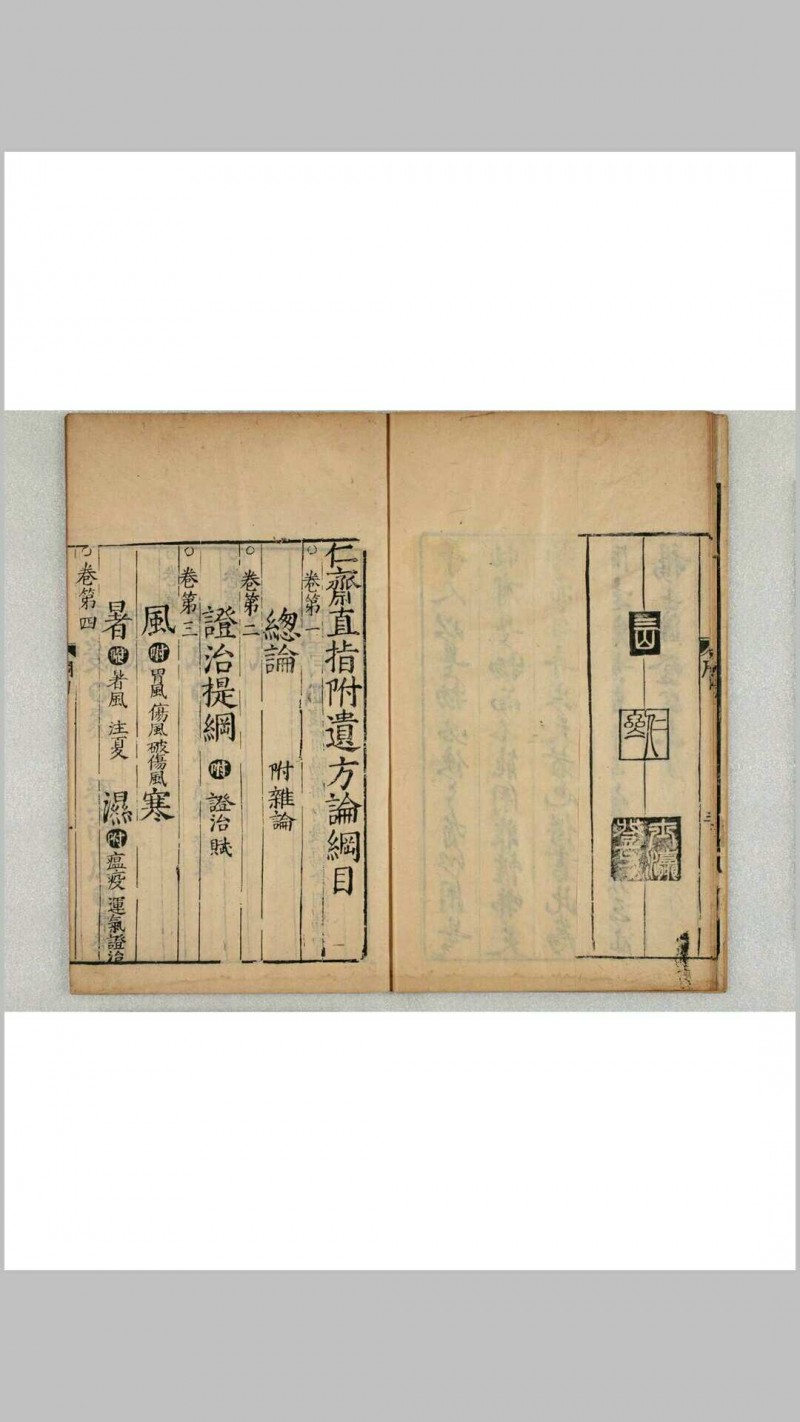 序
三
仁齋直指附遺方論綱目
○卷第一
總論 附雜論
○卷第二
證治提綱 附 證治賦
○卷第三
風 附 胃風 傷風 破傷風 寒
暑 附 暑風 注夏 濕 附 瘟疫 運氣證治
○卷第四